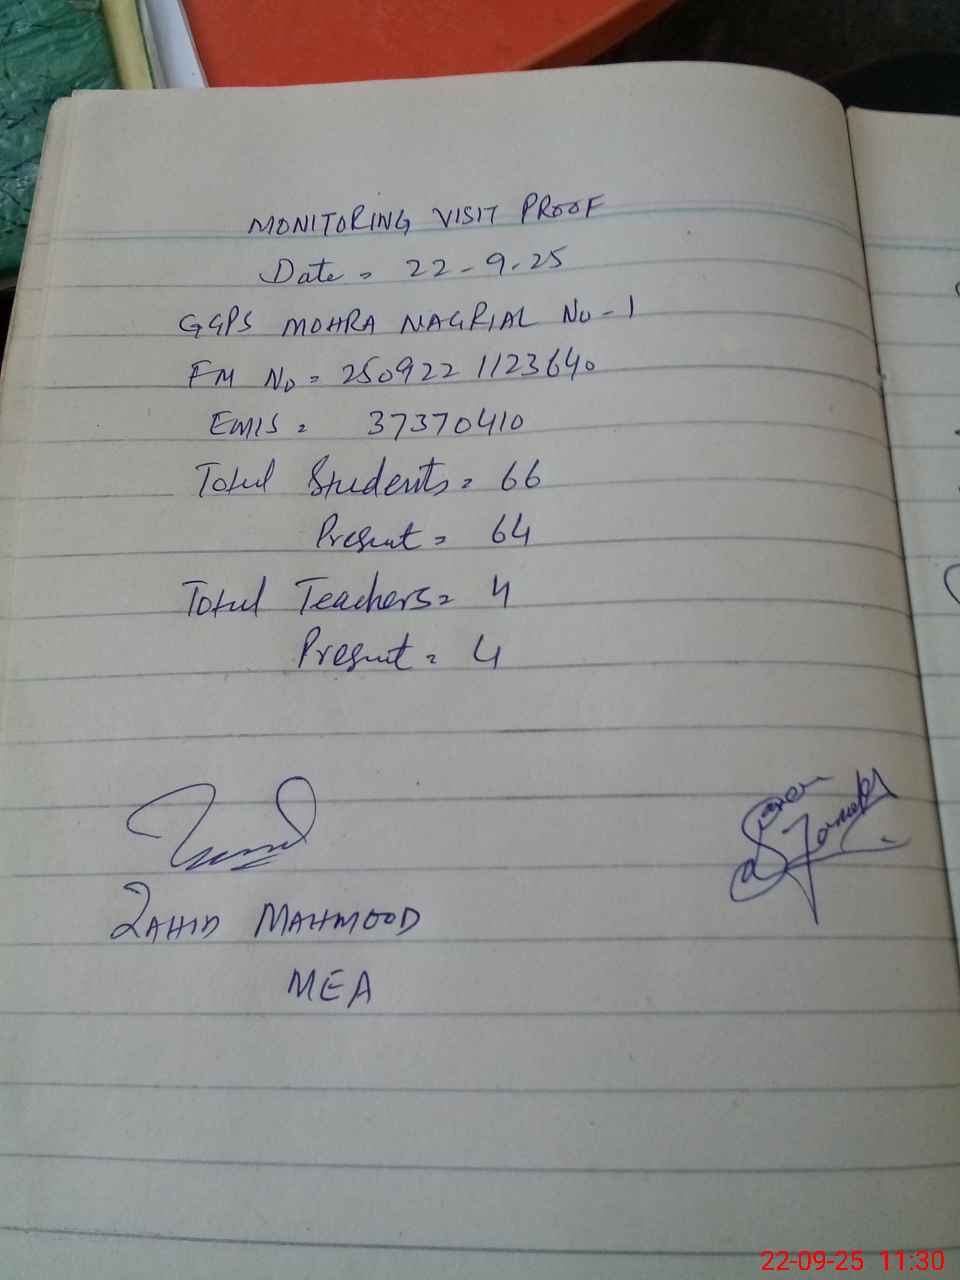 MONITORING VISIT PROOF
Date = 22-9-25
GGPS MOHRA NAGRIAL No-1
FM No = 2509221123640
EMIS = 37370410
Total Students = 66
Present = 64
Total Teachers = 4
Present = 4
ZAHID MAHMOOD
MEA
22-09-25 11:30